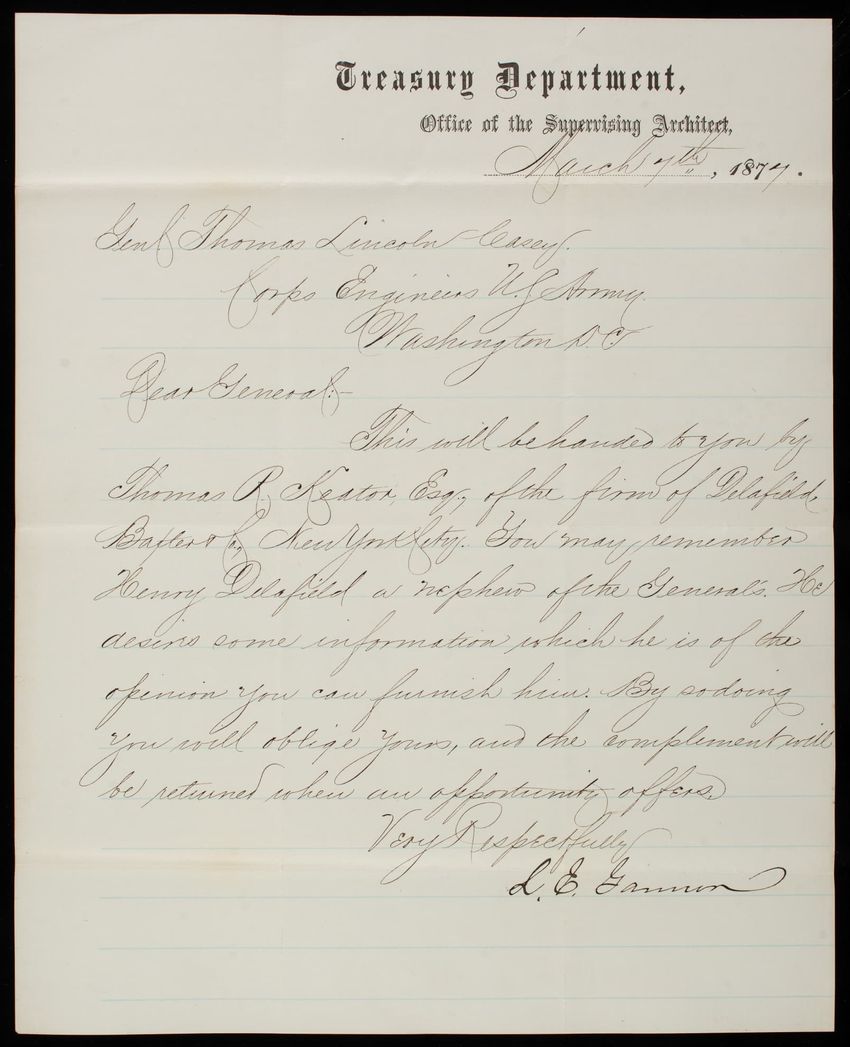 Treasury Department,
Office of the Supervising Architect,
March 7th, 1874.
Genl Thomas Lincoln Casey.
Corps Engineers U.S Army.
Washington D.C
Dear General:-
This will be handed to you by
Thomas R. Keator, Esq., of the firm of Delafield,
Baxter & Co, New York City. You may remember
Henry Delafield a nephew of the General's. He
desires some information which he is of the
opinion you can furnish him. By so doing
you will oblige yours, and the complement will
be returned when an opportunity offers.
Very Respectfully
L. E. Gannon